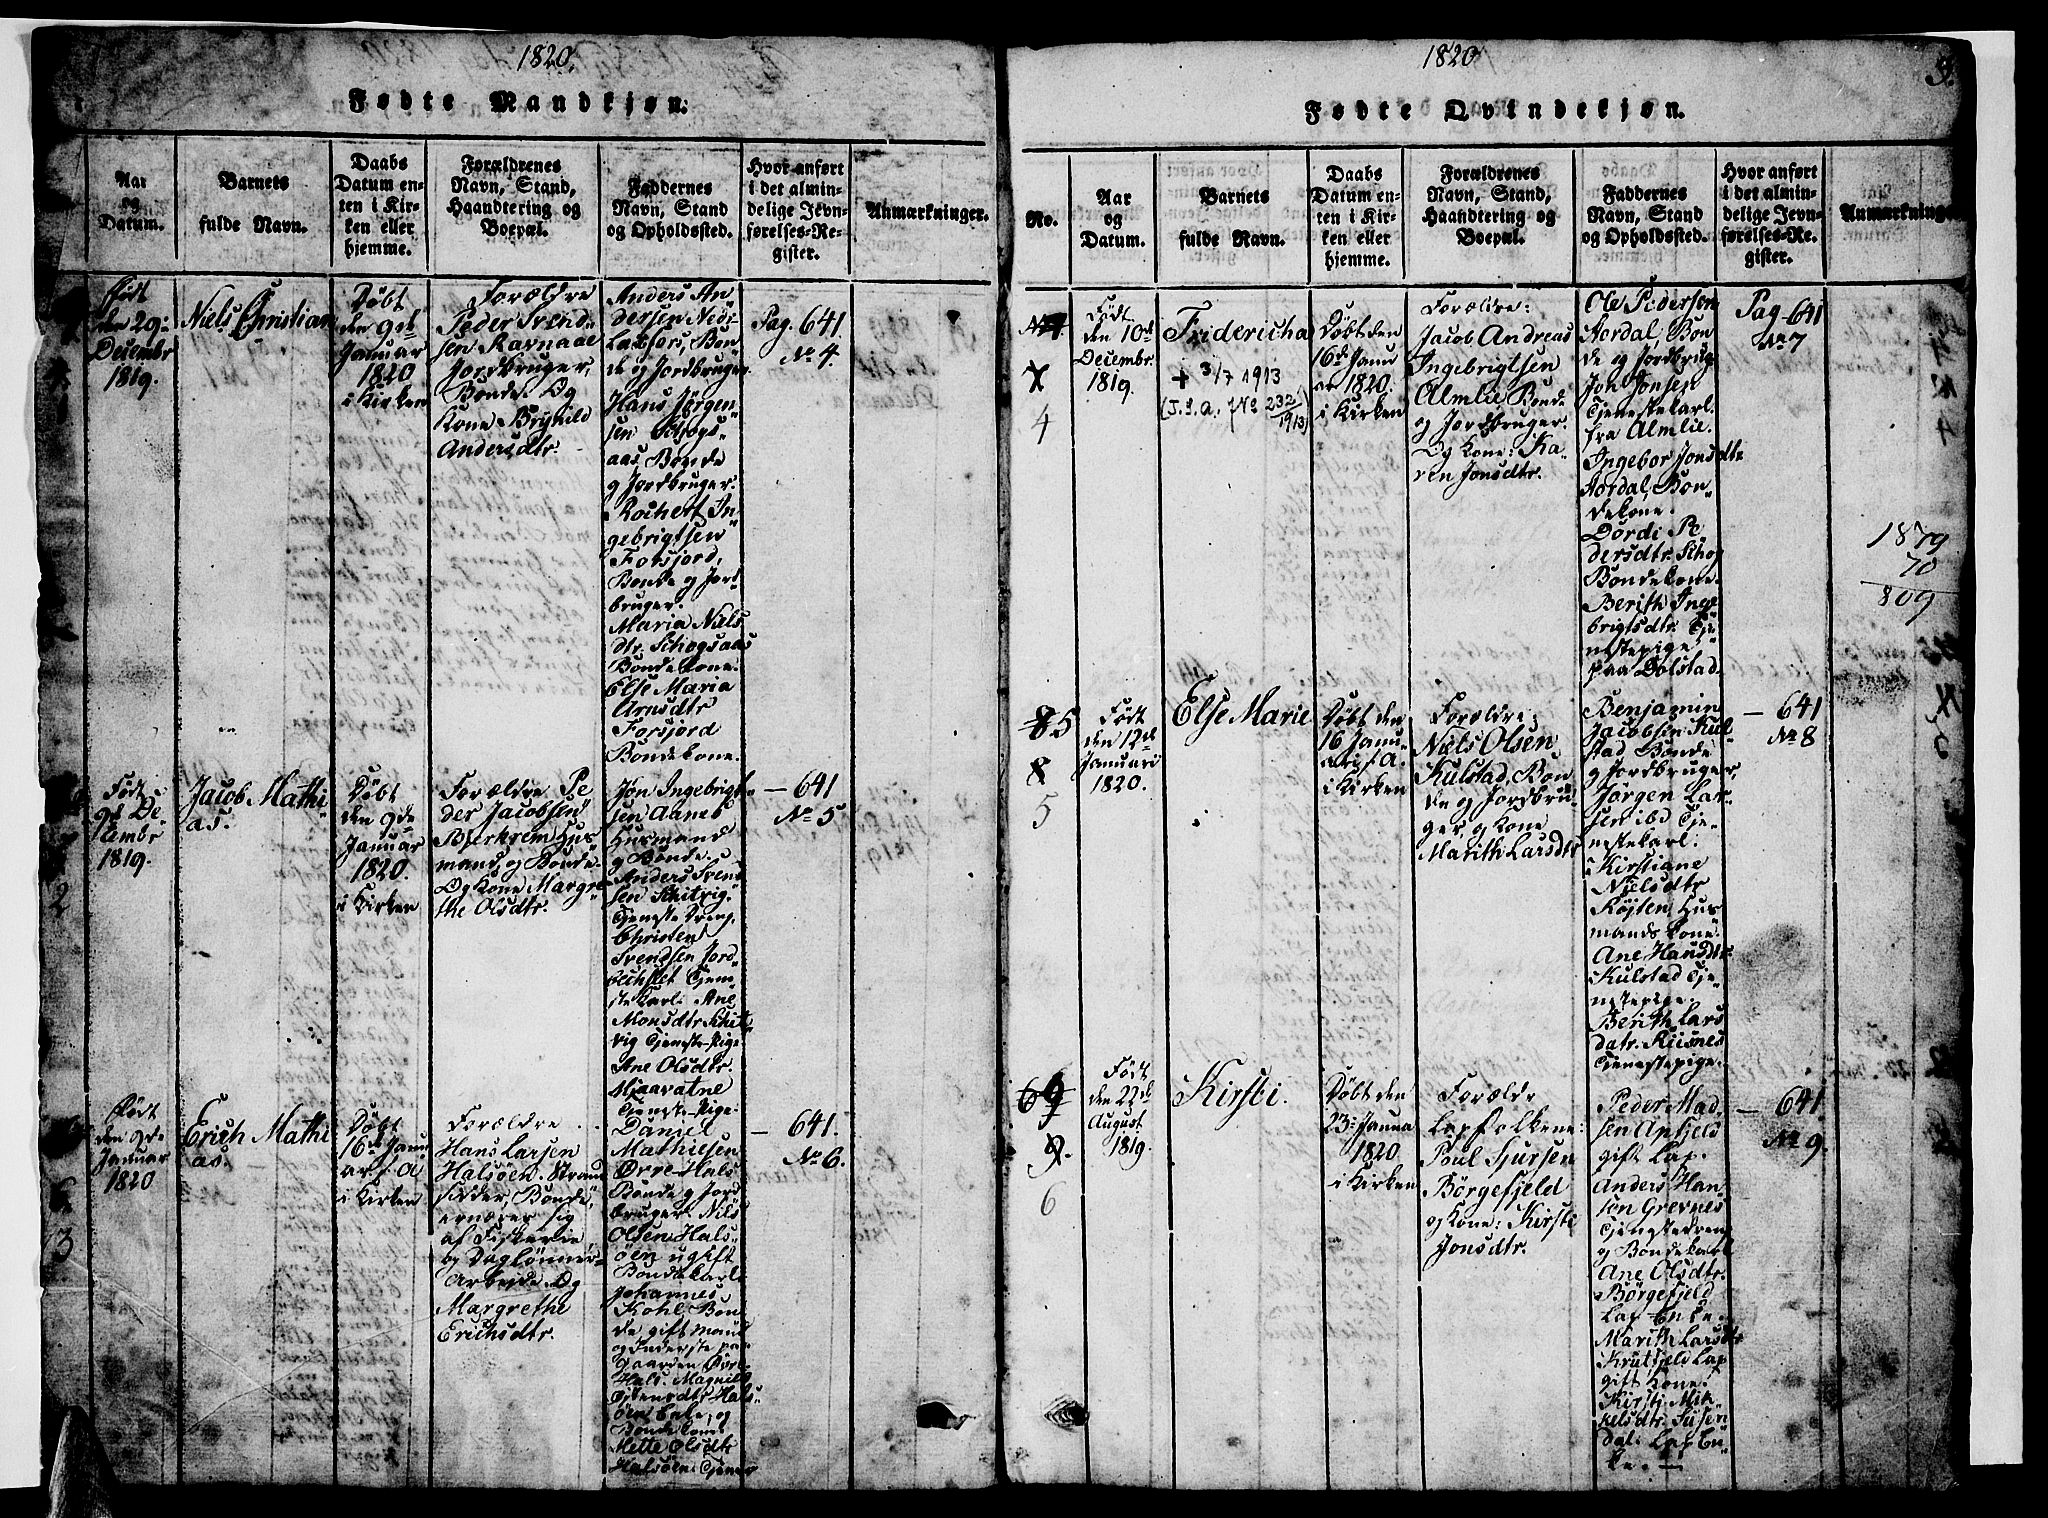 1820.
Fødte Mandkjøn.
Aar
og
Datum.
Barnets
fulde Navn.
Daabs
Datum en-
ten i Kir-
ken eller
hjemme.
Forældrenes
Navn, Stand,
Haandtering og
Boepæl.
Faddernes
Navn, Stand
og Opholdssted.
Hvor anført
i det almin-
delige Jevn-
førelses-Re-
gister.
Anmarkninger.
1
Født
den 29:
Decembr
1819.
Niels Christian
Døbt
den 9d
Januar
1820
i Kirken
Forældre
Peder Svend-
sen Ravnaae
Jordbruger,
Bonde. Og
Kone Brynild
Andersdtr.
Anders An
dersen Nedi-
Laxfors, Bon-
de og Jordbruger
Hans Jørgen-
sen Schogs-
aas Bonde
og Jordbruger.
Rochert In-
gebrigtsen
Forsjord,
Bonde og Jord-
bruger.
Maria Niels
dtr. Schogsaas
Bondekone.
Else Maria
Arnsdtr
Forsjord
Bondekone.
Pag. 641
No 4.
2
Født
9d De-
cembr
1819.
Jacob Mathi
as.
Døbt
den 9de
Januar
1820.
i Kirken
Forældre Pe
der Jacobsen
Bjerkrem Hus
mand og Bonde.
Og Kone Margre
the Olsdtr.
Jon Ingebrigt-
sen Aanes
Husmand
og Bonde.
Anders Svend
sen Schitvig-
Tjeneste Dreng.
Christen
Svendsen Jord
Tjene
ste Karl. Ane
Monsdtr Schit-
vig Tjeneste-Pige
Ane Olsdtr.
Mjaavatne
Tjeneste-Pige.
— 641
No 5
3
Født
den 9de
Januar
1820
Erich Mathi
as.
Døbt
16d Janu
ar s. A
i Kirken
Forældre
Hans Larsen
Halsøen. Strand
sidder, Bonde,
ernærer sig
af Fiskerie
og Daglønner-
Arbejde. Og
Margrethe
Erichsdtr.
Daniel
Mathisen
Ørre-Hals
Bonde og Jord
bruger. Nils
Olsen Hals-
øen ugift
Bondekarl
Johannes
Kohl, Bon
de, gift mand
og Inderste paa
Gaarden Øvre
Hals. Magnild
Hals-
øen Enke, og
Bondekone
Mette Olsdtr
Halsøen. Tjener
— 641.
No 6.
1820
3.
Fødte Qvindekjøn.
No.
Aar
og
Datum.
Barnets
fulde Navn.
Daabs
Datum en-
ten i Kir-
ken eller
hjemme.
Forældrenes
Navn, Stand,
Haandtering og
Boepæl.
Faddernes
Navn, Stand
og Opholdssted.
Hvor anført
i det almin-
delige Jevn-
førelses-Re-
gister.
Anmarkninge
4
Født
den 10d
Decembr.
1819.
Fridericha
+ 3/7 1913
(J.S.a. No 232/1913)
Døbt den
16d Janu
ar 1820.
i Kirken
Forældre:
Jacob Andreas
Ingebrigtsen
Almlie Bonde
og Jordbruger.
Og Kone: Ka-
ren Jonsdtr.
Ole Pedersen
Aordal, Bon
de og Jordbrug
Jon Jonsen
Tjenestekarl.
fra Almlie.
Ingebor Jonsdtr
Aordal, Bon-
dekone.
Dordi Pe-
dersdtr. Schog
Bondekone.
Berith Inge
brigtsdtr. Tje-
nestepige.
paa Dolstad
Pag- 641
No 7
1879
70
809
85
8
5
Født
den 12d
Januari
1820.
Else Marie
Døbt den
16 Janu-
ari s. A.
i Kirken
Forældre:
Niels Olsen
Kulstad, Bon
de og Jordbru-
ger, og Kone
Marith Larsdtr
Benjamin
Jacobsen Kul-
stad Bonde
og Jordbruger,
Jørgen Lar-
sen ibd Tje-
nestekarl.
Kirstiane
Nielsdtr
Røjten, Hus
mandskone.
Ane Hansdtr
Kulstad Tje-
nestepige.
Berith Lars
datr. Riisnes
Tjenestepige.
— 641
No 8
69
9.
6
Født
den 22d
August
1819.
Kirsti.
Døbt den
23. Janua
1820
i Kirken
Forældre
Lapfolkene:
Poul Sjursen
Børgefjeld
og Kone: Kirsti
Jonsdtr.
Peder Mad
sen Apfjeld
gift Lap.
Anders Han-
søn Grevnes
Tjenestedreng
og Bondekarl
Ane Olsdtr.
Børgefjeld
Lap-Enke.
Marith Larsdtr
Krutfjeld Lap
gift Kone.
Kirsti Mik-
kelsdtr. Susen
dal. Lap En-
ke. —
— 641.
No 9.